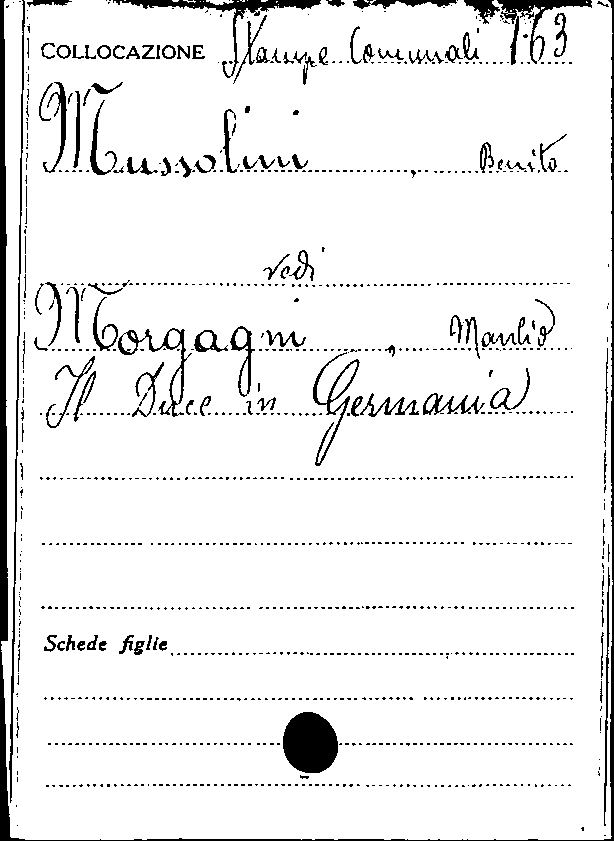 COLLOCAZIONE Stampe Comunali 1·63
Mussolini, Benito
vedi
Morgagni, Manlio
Il Duce in Germania
Schede figlie